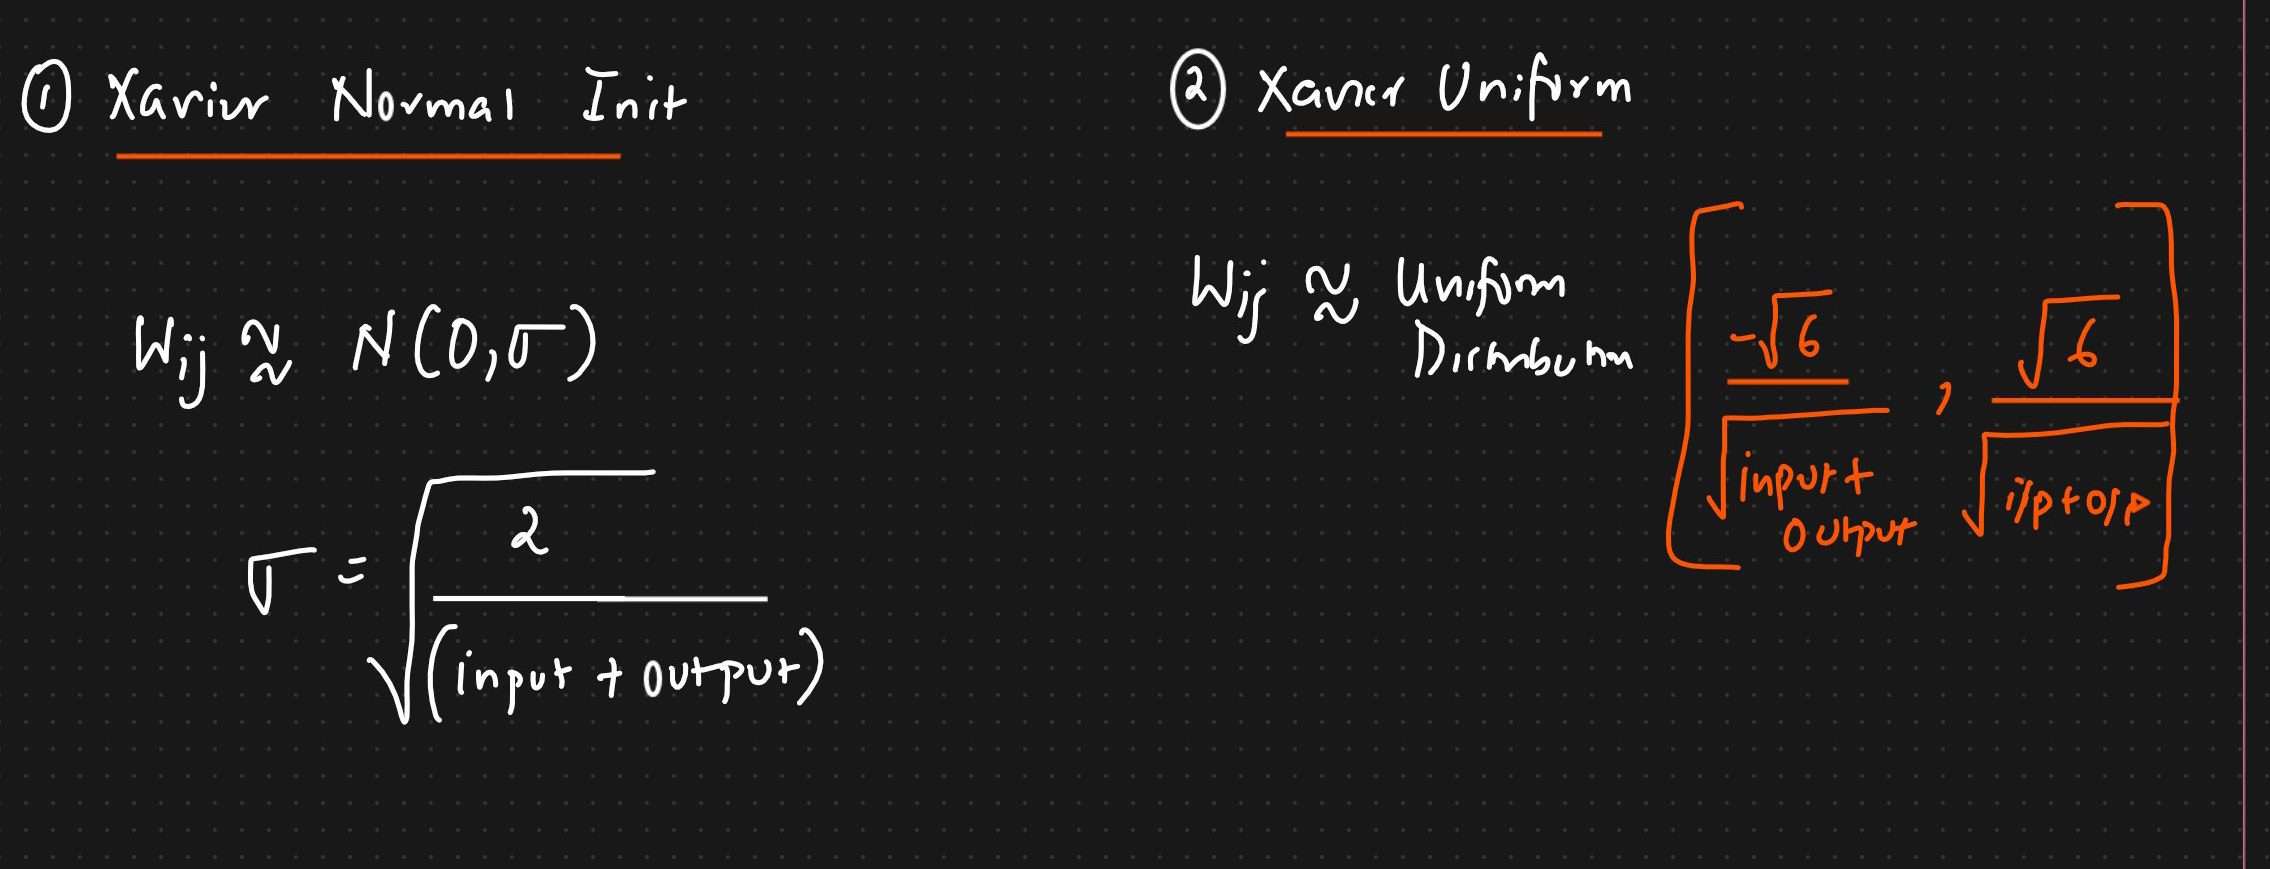 ① Xavier Normal Init
Wij ≈ N(0,σ)
σ = √(2 / (input + output))
② Xavier Uniform
Wij ≈ Uniform
Distribution
[-√6 / √(input + output) , √6 / √(i/p + o/p)]